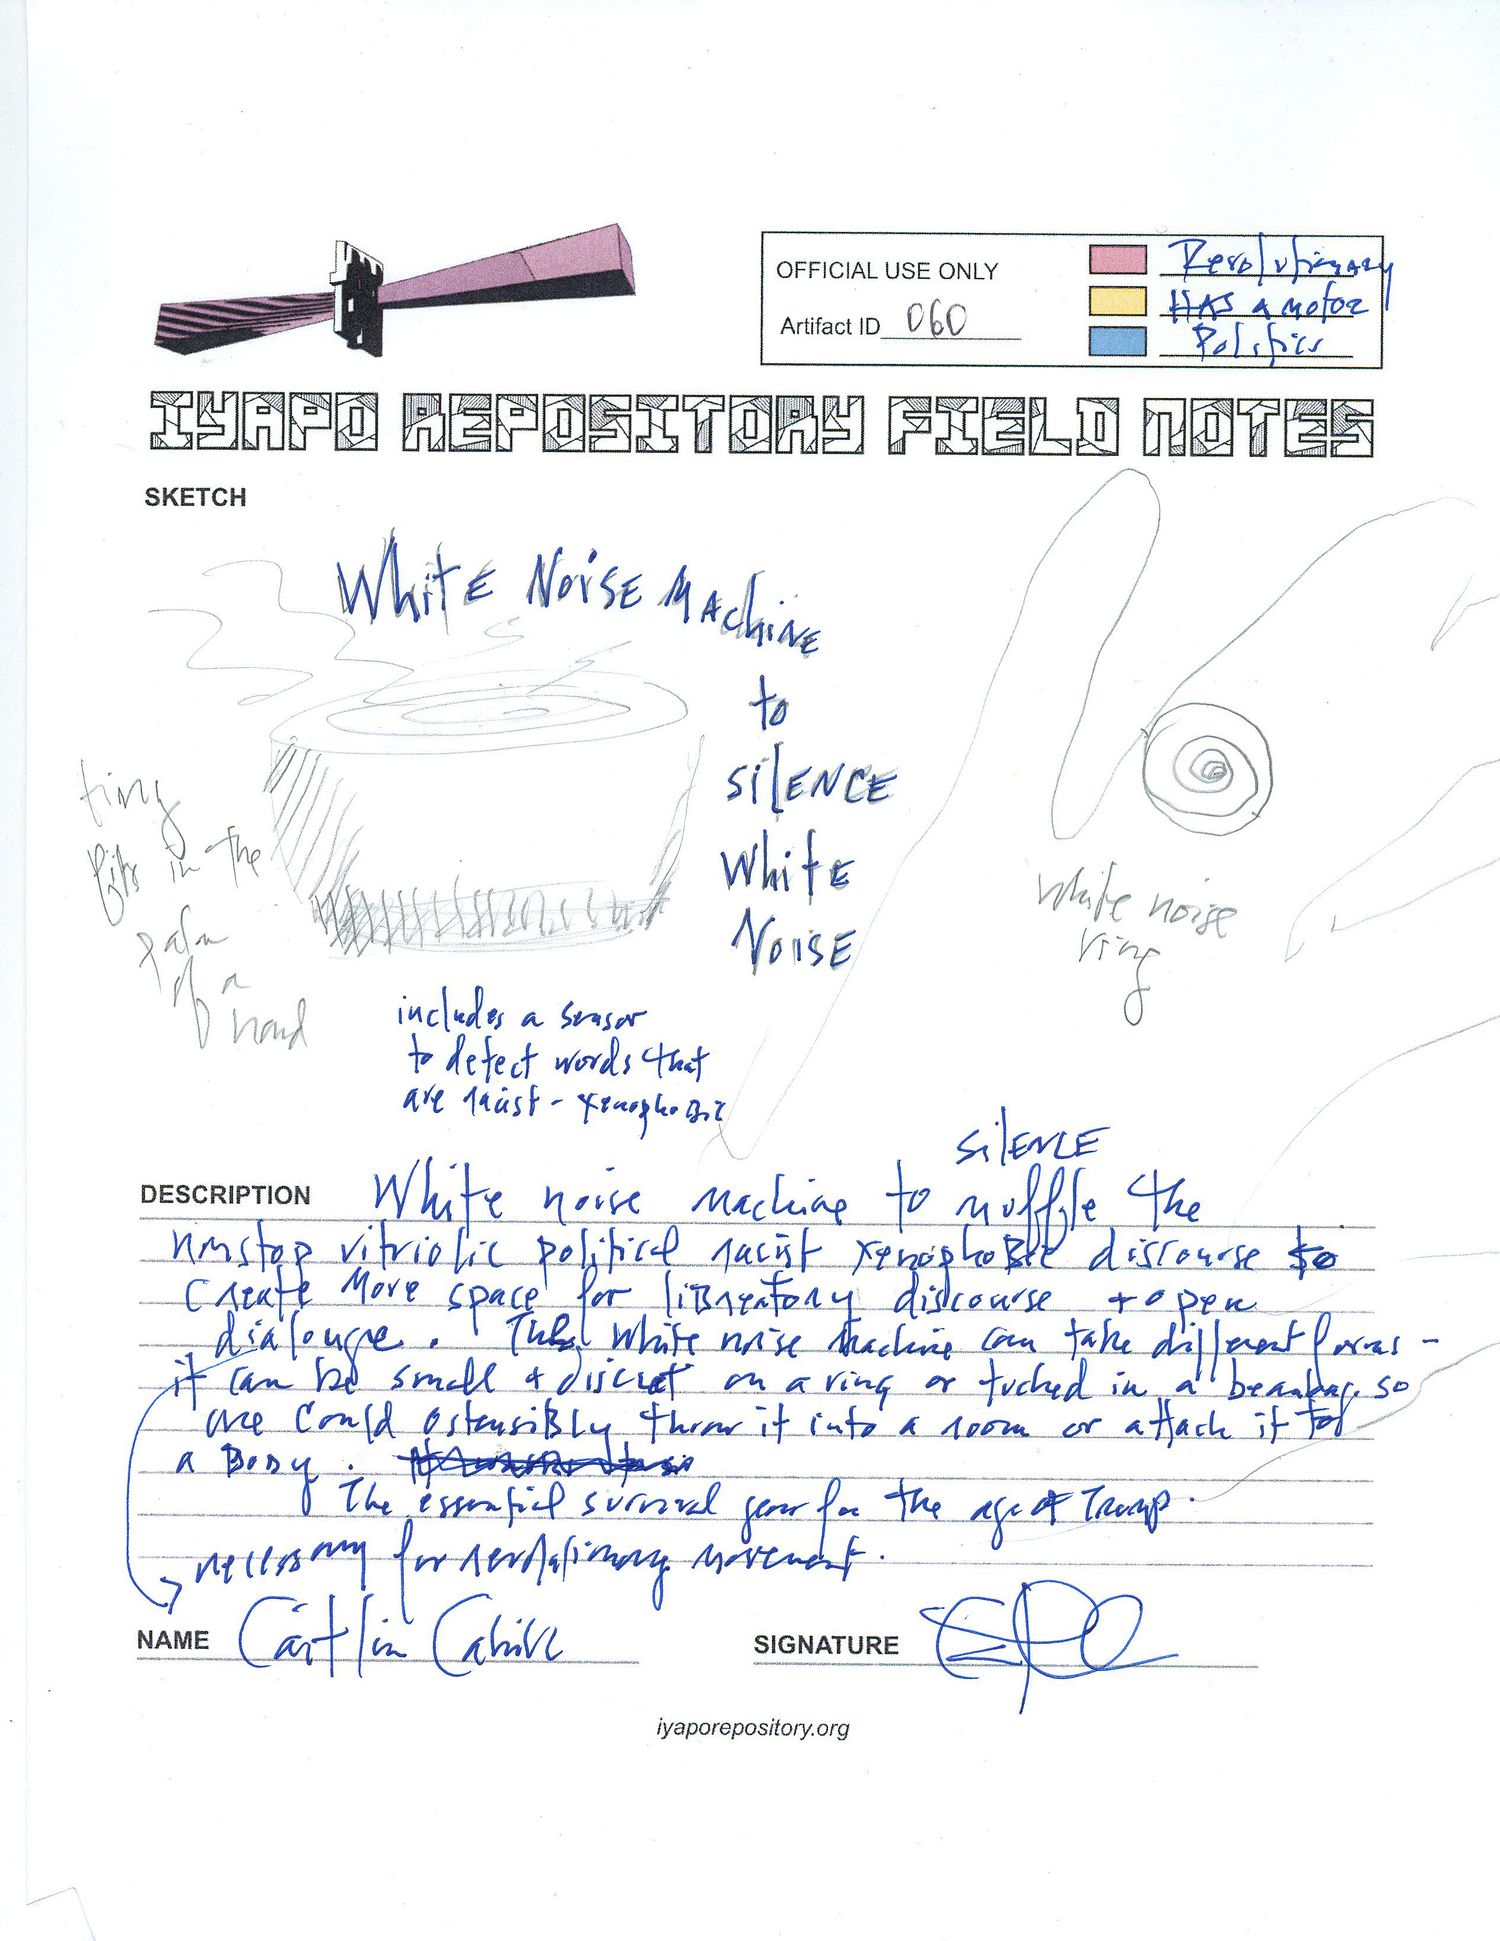 OFFICIAL USE ONLY
Artifact ID 060
Revolutionary
HAS a motor
Politics
IYAPO REPOSITORY FIELD NOTES
SKETCH
White Noise Machine
to
SilENCE
White
Noise
tiny
fits in the
palm
of a
hand
white noise
ring
includes a sensor
to detect words that
are racist - xenophobic
silence
DESCRIPTION White noise machine to muffle the
nonstop vitriolic political racist xenophobic discourse to
create more space for libreatory discourse + open
dialougre. This white noise machine can take different forms -
it can be small + discret on a ring or tucked in a beanbag, so
one could ostensibly throw it into a room or attach it to
a Body.
The essential survival gear for the age of Trump.
necessary for revolutionary movement.
NAME Caitlin Cahill
SIGNATURE
iyaporepository.org